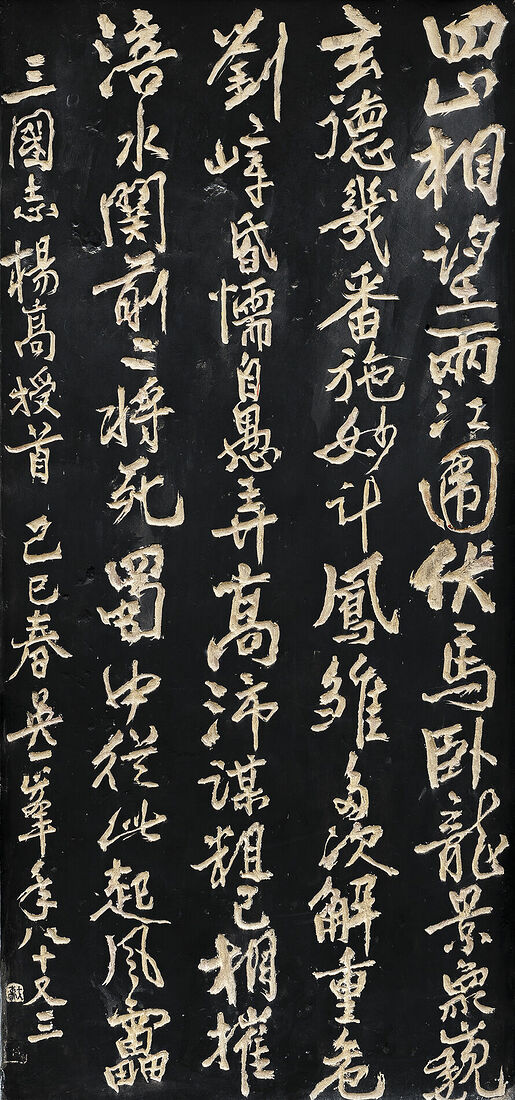 四山相望兩江圍伏馬卧龍景象巍
玄德幾番施妙计鳳雛多次解重危
劉璋昏懦自愚弄高沛謀粗已相摧
涪水関前二將死蜀中從此起風靁
三國志楊高授首 己巳春吳一峯年八十又三